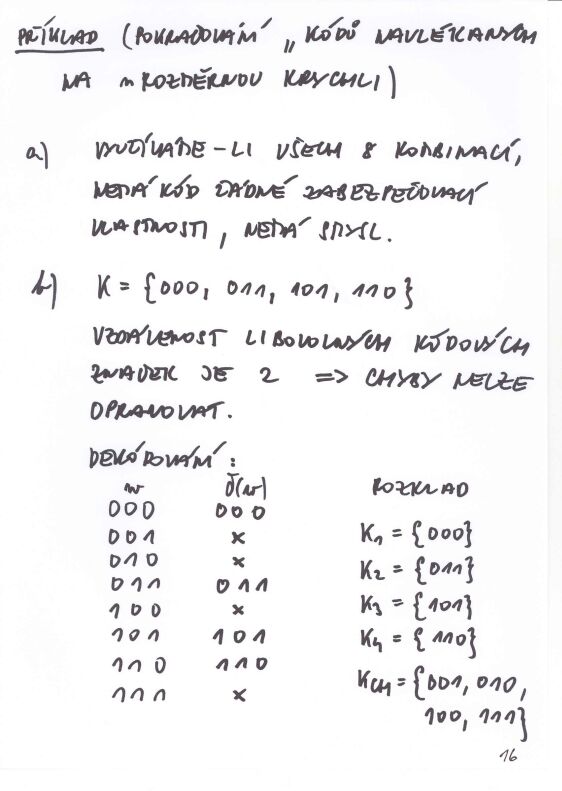 PŘÍKLAD (POKRAČOVÁNÍ „KÓDŮ NAVLÉKANÝCH
NA n ROZMĚRNOU KRYCHLI)
a) VYUŽÍVÁME-LI VŠECH 8 KOMBINACÍ,
NEMÁ KÓD ŽÁDNÉ ZABEZPEČOVACÍ
VLASTNOSTI, NEMÁ SMYSL.
b) K = {000, 011, 101, 110}
VZDÁLENOST LIBOVOLNÝCH KÓDOVÝCH
ZNAČEK JE 2 => CHYBY NELZE
OPRAVOVAT.
DEKÓDOVÁNÍ:
w δ(w) ROZKLAD
000 000
001 x K1 = {000}
010 x K2 = {011}
011 011 K3 = {101}
100 x K4 = {110}
101 101
110 110 KCH = {001, 010,
111 x 100, 111}
16